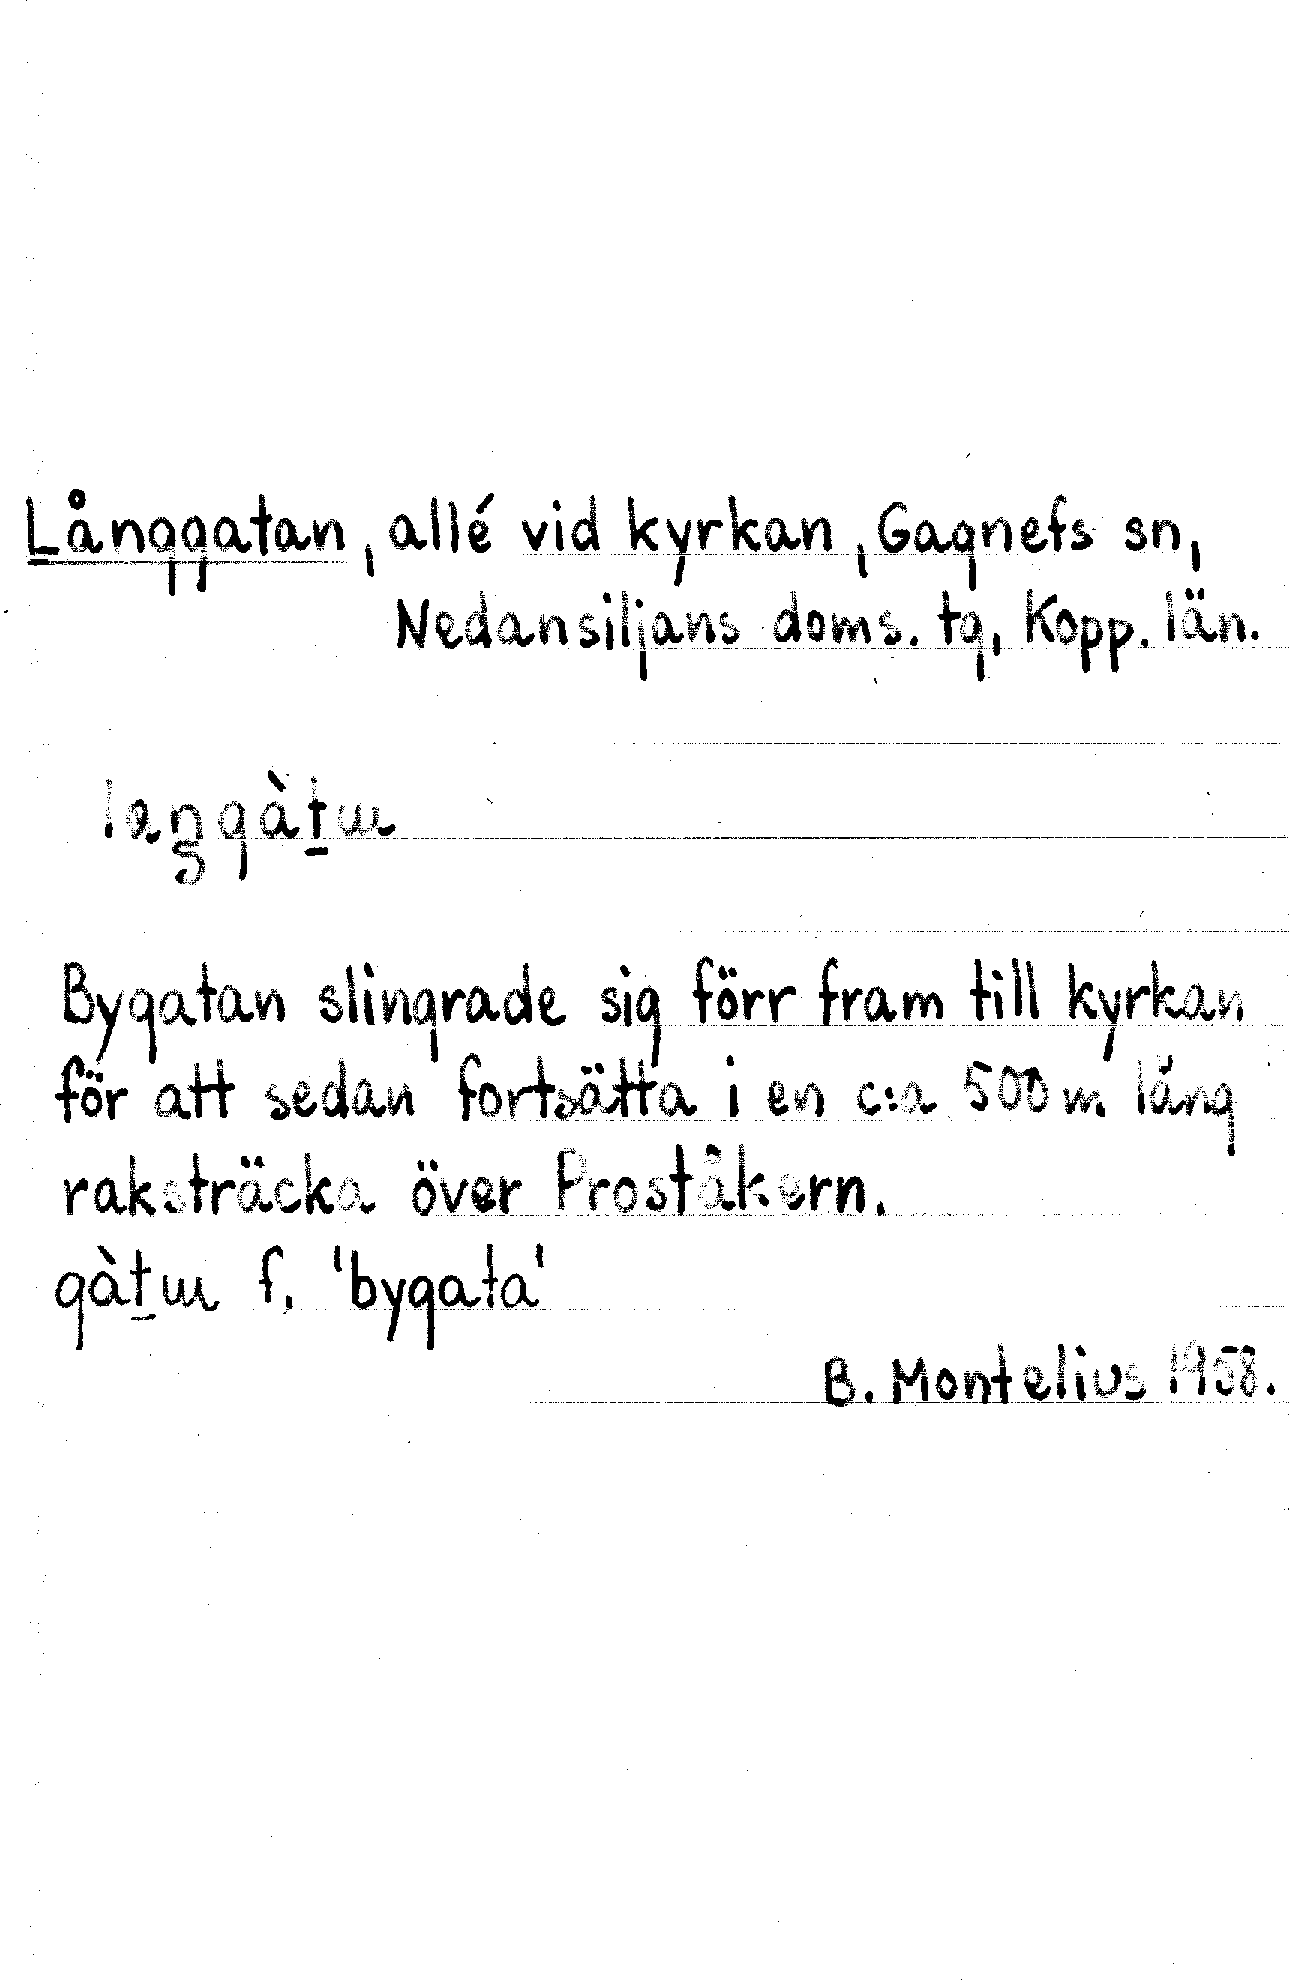 Långgatan, allé vid kyrkan, Gagnefs sn,
Nedansiljans doms. tg, Kopp. län.
laŋgàtɯ
Bygatan slingrade sig förr fram till kyrkan
för att sedan fortsätta i en c:a 500 m. lång
raksträcka över Proståkern.
gàt̠ɯ f. 'bygata'
B. Montelius 1958.